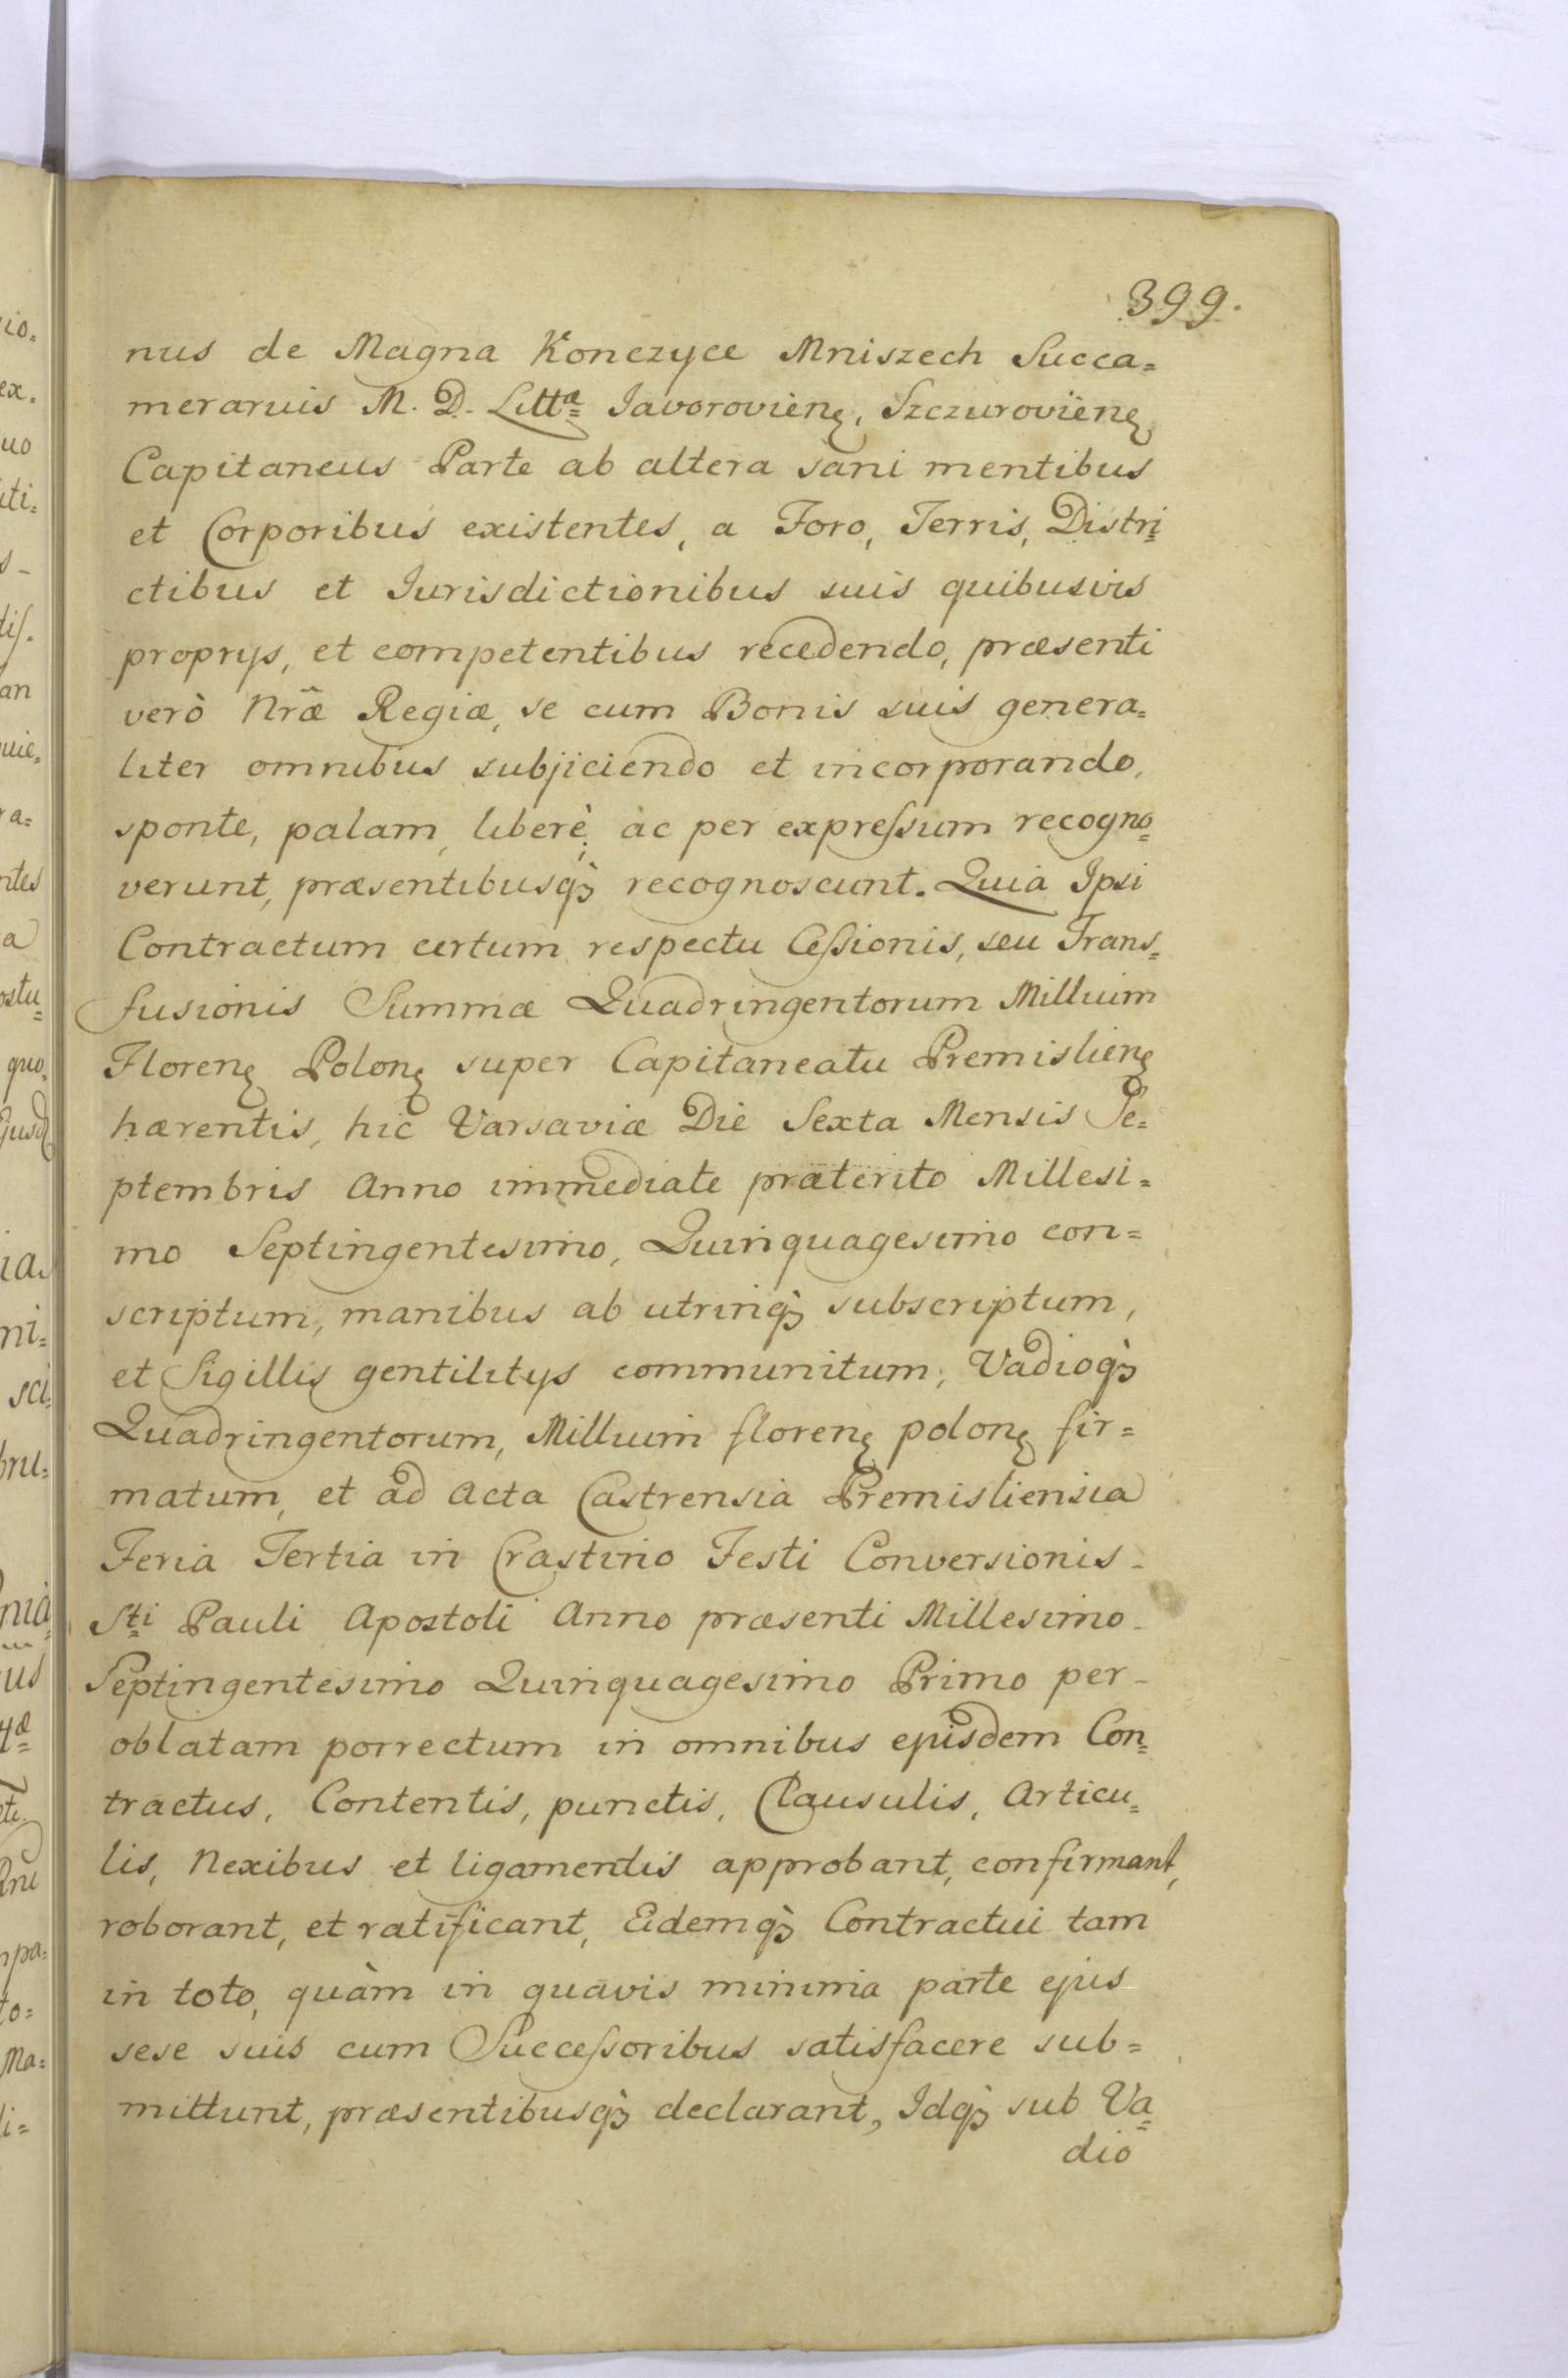 399.
nus de Magna Konczyce Mniszech Succa=
merarius M. D. Littæ Javorovienę, Szczurovienę
Capitaneus Parte ab altera sani mentibus
et Corporibus existentes, a Foro, Terris, Distri=
ctibus et Jurisdictionibus suis quibusvis
proprys, et competentibus recedendo, præsenti
verò Nrã̃æ Regiæ, se cum Bonis suis genera=
liter omnibus subjiciendo et incorporando,
sponte, palam, liberè, ac per expreſsum recogno=
verunt, præsentibusq̀ȝ recognoscunt. Quia Ipsi
Contractum certum respectu Ceſsionis, seu Trans=
fusionis Summæ Quadringentorum Millium
Florenę Polonę super Capitaneatu Premislienę
hærentis, hic Varsaviæ Die Sexta Mensis Se=
ptembris Anno immediate præterito Millesi=
mo Septingentesimo, Quinquagesimo con=
scriptum, manibus ab utrinq̀ȝ subscriptum,
et Sigillis gentilitys communitum, Vadioq̀ȝ
Quadringentorum, Millium florenę polonę fir=
matum, et ad Acta Castrensia Premisliensia
Feria Tertia in Crastino Festi Conversionis
Sti Pauli Apostoli Anno præsenti Millesimo
Septingentesimo Quinquagesimo Primo per
oblatam porrectum in omnibus ejusdem Con=
tractus, Contentis, punctis, Clausulis, Articu=
lis, Nexibus et ligamentis approbant, confirmant,
roborant, et ratificant, Eidemq̀ȝ Contractui tam
in toto, quàm in quavis minima parte ejus
sese suis cum Succeſsoribus satisfacere sub=
mittunt, præsentibusq̀ȝ declarant, Idq̀ȝ sub Va=
dio